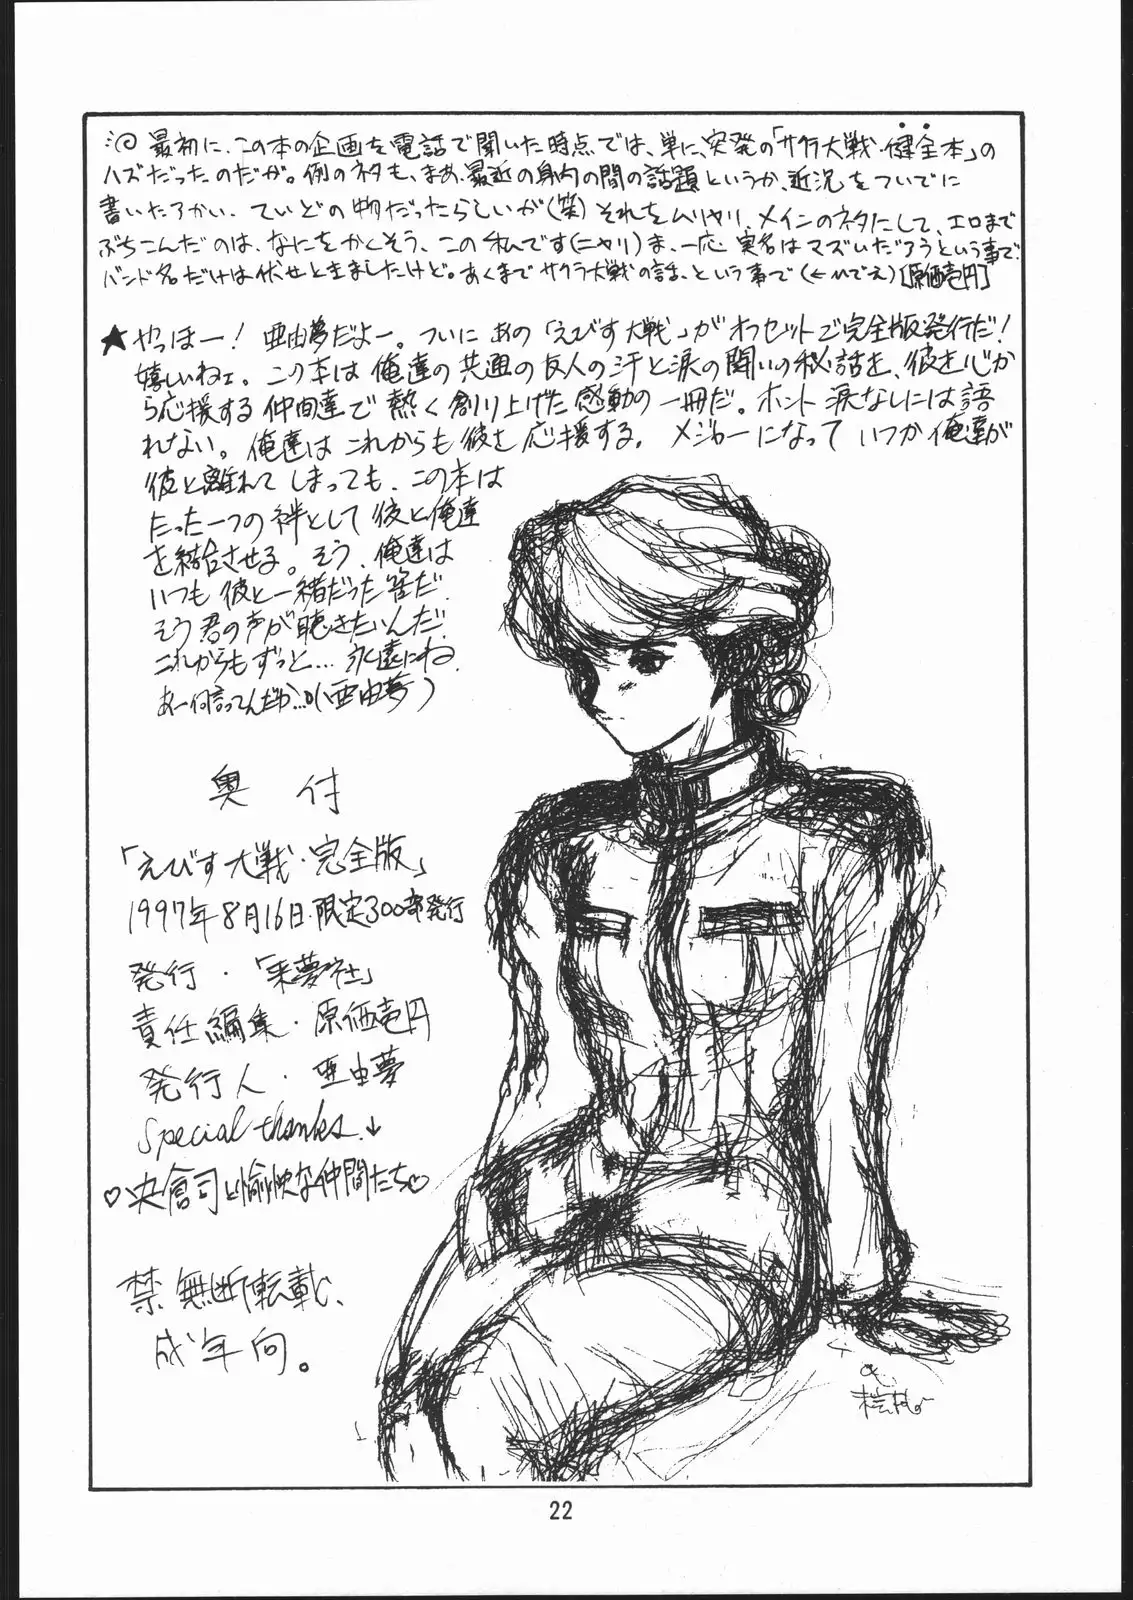 最初に、この本の企画を電話で聞いた時点では、単に、突発の「サクラ大戦・健全本」の
ハズだったのだが。例のネタも、まあ、最近の身内の間の話題というか、近況をついでに
書いたろかい、ていどの物だったらしいが(笑)それをムリヤリ、メインのネタにして、エロまで
ぶちこんだのは、なにをかくそう、この私です(ニヤリ)ま、一応実名はマズいだろうという事で、
バンド名だけは伏せときましたけど。あくまでサクラ大戦の話、という事で(←いでえ)[原価壱円]
★やっほー!亜由夢だよー。ついにあの「えびす大戦」がオフセットで完全版発行だ!
嬉しいねェ。この本は俺達の共通の友人の汗と涙の闘いの秘話を、彼を心か
ら応援する仲間達で熱く創り上げた感動の一冊だ。ホント涙なしには語
れない。俺達はこれからも彼を応援する。メジャーになっていつか俺達が
彼と離れてしまっても、この本は
たった一つの絆として彼と俺達
を結合させる。そう、俺達は
いつも彼と一緒だった筈だ。
そう君の声が聴きたいんだ。
これからもずっと…永遠にね。
あー何言ってんだか…。(亜由夢)
奥付
「えびす大戦・完全版」
1997年8月16日・限定300部発行
発行・「来夢社」
責任編集・原価壱円
発行人・亜由夢
Special thanks.↓
♡決倉司と愉快な仲間たち♡
禁無断転載、
成年向。
22